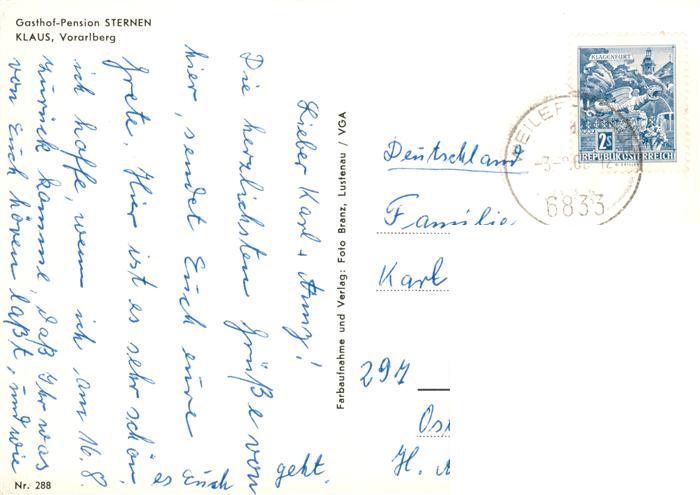 Gasthof-Pension STERNEN
KLAUS, Vorarlberg
Lieber Karl + Anny!
Die herzlichsten Grüße von
hier, sendet Euch eure
Grete. Hier ist es sehr schön,
ich hoffe, wenn ich, am 16.8.
zurück komme, daß Ihr was
von Euch hören laßt, und wie
es Euch geht.
Nr. 288
Farbaufnahme und Verlag: Foto Branz, Lustenau / VGA
KLAGENFURT
2S
REPUBLIK ÖSTERREICH
WEILER
6833
Deutschland
Familie
Karl
291
Ost
H.